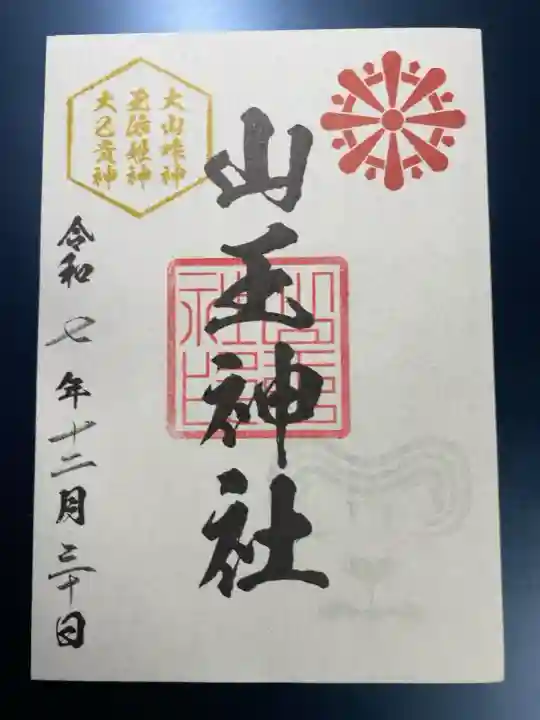 大山咋神
玉依姫神
大己貴神
山王神社
令和七年十二月三十日